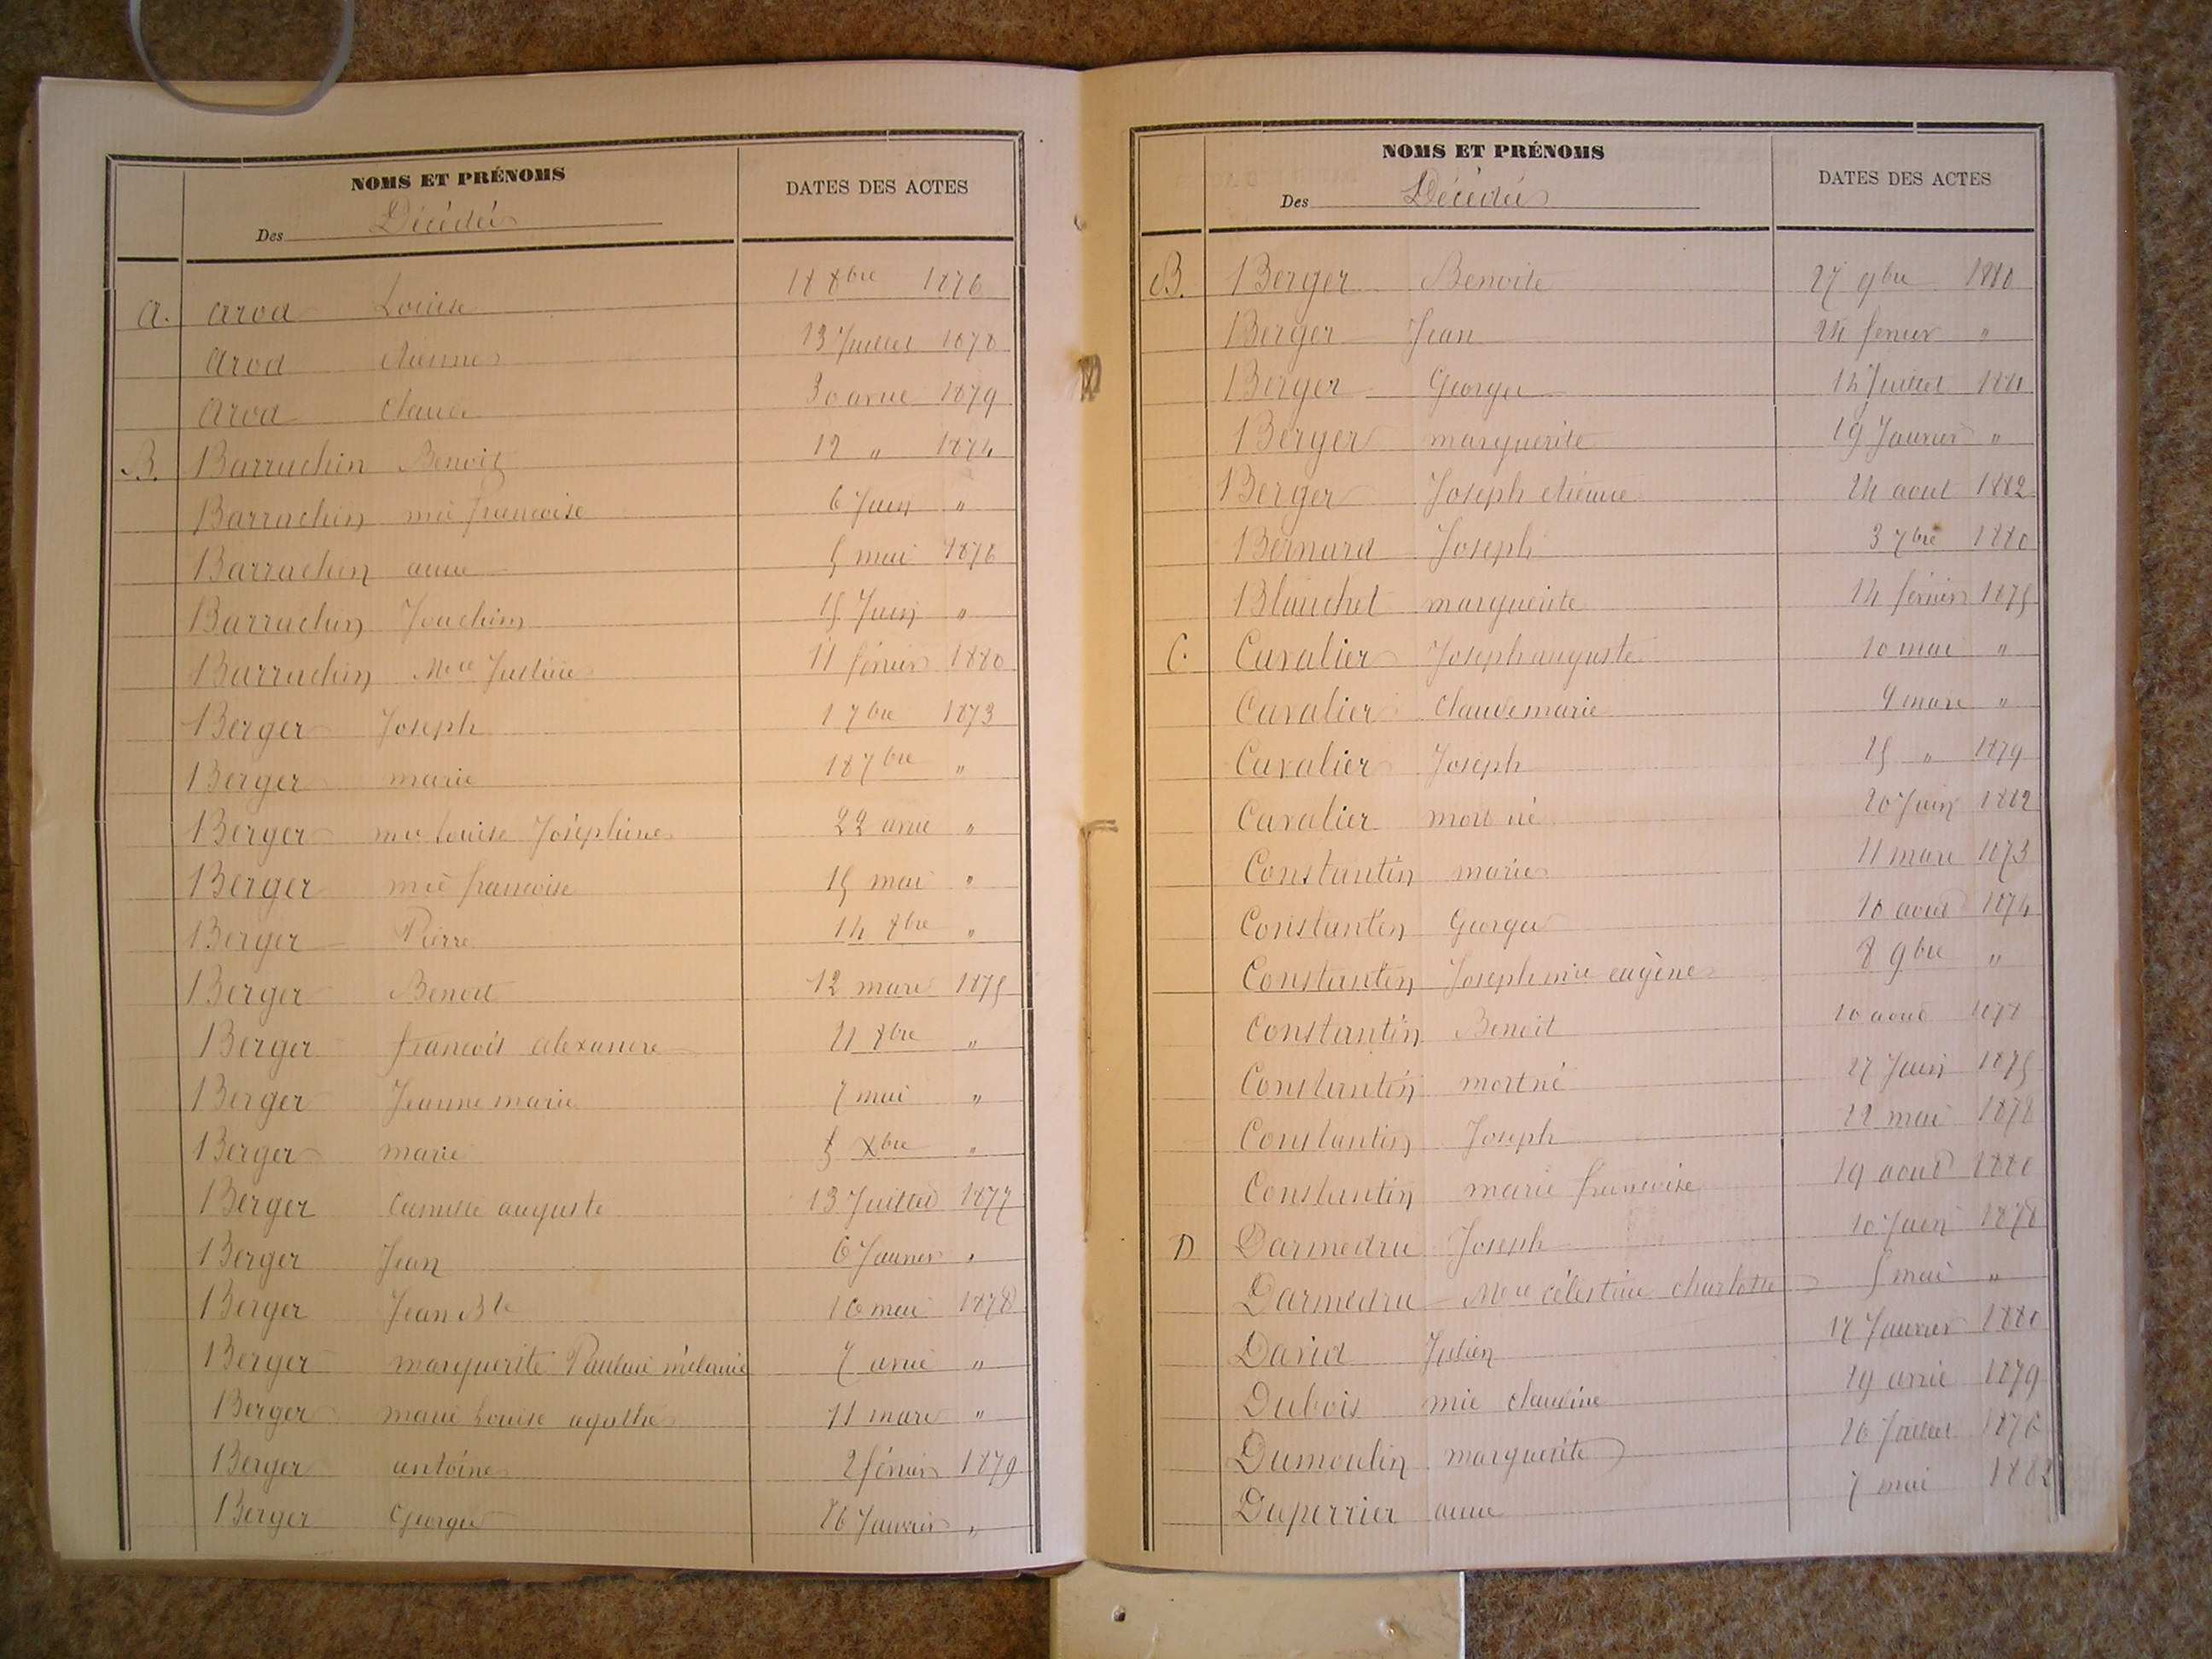 NOMS ET PRÉNOMS
DATES DES ACTES
Des Décédés
A. Arod Louise 18 8bre 1876
Arod étienne 13 Juillet 1878
Arod Claude 30 avril 1879
B. Barrachin Benoit 12 " 1874
Barrachin mie francoise 6 Juin "
Barrachin anne 5 mai 1878
Barrachin Joachim 15 Juin "
Barrachin Justine 11 février 1880
Berger Joseph 1 7bre 1873
Berger marie 18 7bre "
Berger mie Louise Joséphine 22 avril "
Berger mie francoise 15 mai "
Berger Pierre 14 8bre "
Berger Benoit 12 mars 1875
Berger francois alexandre 21 8bre "
Berger Jeanne marie 7 mai "
Berger marie 5 Xbre "
Berger Camille auguste 13 Juillet 1877
Berger Jean 6 Janvier "
Berger Jean Bte 10 mai 1878
Berger marguerite Pauline mélanie 7 avril "
Berger marie Louise agathe 11 mars "
Berger antoine 2 février 1879
Berger George 26 Janvier "
NOMS ET PRÉNOMS
DATES DES ACTES
Des Décédés
B. Berger Benoite 27 9bre 1880
Berger Jean 24 fevrier "
Berger George 14 Juillet 1881
Berger marguerite 19 Janvier "
Berger Joseph étienne 24 aout 1882
Bernard Joseph 3 7bre 1880
Blanchet marguerite 14 février 1875
C. Cavalier Joseph auguste 10 mai "
Cavalier Claude marie 9 mars "
Cavalier Joseph 15 " 1879
Cavalier mort né 20 Juin 1882
Constantin marie 11 mars 1873
Constantin George 10 aout 1874
Constantin Joseph mie eugène 8 9bre "
Constantin Benoit 10 aout 1878
Constantin mort né 27 Juin 1875
Constantin Joseph 22 mai 1878
Constantin marie francoise 19 aout 1880
D Darmedru Joseph 10 Juin 1878
Darmedru célestine charlotte 5 mai "
David Julien 17 Janvier 1880
Dubois mie claudine 19 avril 1879
Dumoulin marguerite Juillet 1876
Duperrier anne 7 mai 1882